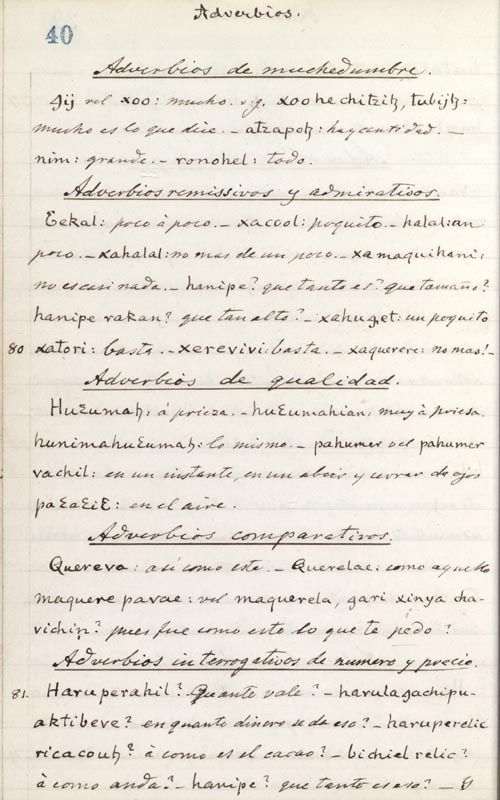 Adverbios.
40
Adverbios de muchedumbre.
Ꜭij vel xoo: mucho. v.g. xoohe chitziꜩ, tubijꜩ:
mucho es lo que dice. – atzapoꜩ: hay cantidad. –
nim: grande. – ronohel: todo.
Adverbios remissivos y admirativos.
Ɛeƙal: poco à poco. – xacool: poquito. – halal: an
poco. – xahalal: no mas de un poco. – xa maquihani:
no es casi nada. – hanipe? que tanto es? que tamaño?
hanipe rakan? que tan alto? – xahuꜭet: un poquito
80 xatori: basta. – xerevivi: basta. – xaquerere: no mas! –
Adverbios de qualidad.
HuƐumaꜩ: á prieza. – huƐumahian: muy à priesa.
hunimahuƐumaꜩ: lo mismo. – pahumer vel pahumer
vachil: en un instante, en un abrir y cerrar de ojos
paƐaƐiƐ: en el aire.
Adverbios comparativos.
Quereva: asi como este. – Querelae: como aquello
maquere pavae: vel maquerela, qari xinya cha-
vichin? pues fue como esto lo que te pedo?
Adverbios interrogativos de numero y precio.
81. Haruperahil? Quanto vale? – harulaꜭachipu-
aktibeve? en quanto dinero se da eso? – haruperelic
ricacouꜩ? à como es el cacao? – bichiel relic?
à como anda? – hanipe? que tanto es eso? –